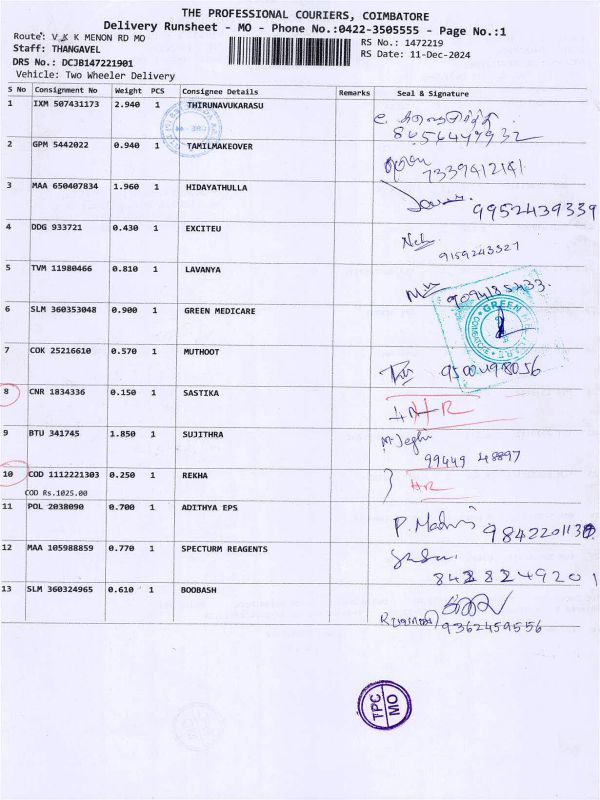 THE PROFESSIONAL COURIERS, COIMBATORE
Delivery Runsheet - MO - Phone No.:0422-3505555 - Page No.:1
Route: V K K MENON RD MO
RS No.: 1472219
Staff: THANGAVEL
RS Date: 11-Dec-2024
DRS No.: DCJB147221901
Vehicle: Two Wheeler Delivery
S No Consignment No Weight PCS Consignee Details Remarks Seal & Signature
1 IXM 507431173 2.940 1 THIRUNAVUKARASU
2 GPM 5442022 0.940 1 TAMILMAKEOVER
7339412141
3 MAA 650407834 1.960 1 HIDAYATHULLA
9952439339
4 DDG 933721 0.430 1 EXCITEU
9159243327
5 TVM 11980466 0.810 1 LAVANYA
6 SLM 360353048 0.900 1 GREEN MEDICARE
7 COK 25216610 0.570 1 MUTHOOT
9500498056
8 CNR 1834336 0.150 1 SASTIKA
9 BTU 341745 1.850 1 SUJITHRA
99449 48897
10 COD 1112221303 0.250 1 REKHA
HR
COD Rs.1025.00
11 POL 2038090 0.700 1 ADITHYA EPS
12 MAA 105988859 0.770 1 SPECTURM REAGENTS
8428249201
13 SLM 360324965 0.610 1 BOOBASH
9362459556
TPC
MO